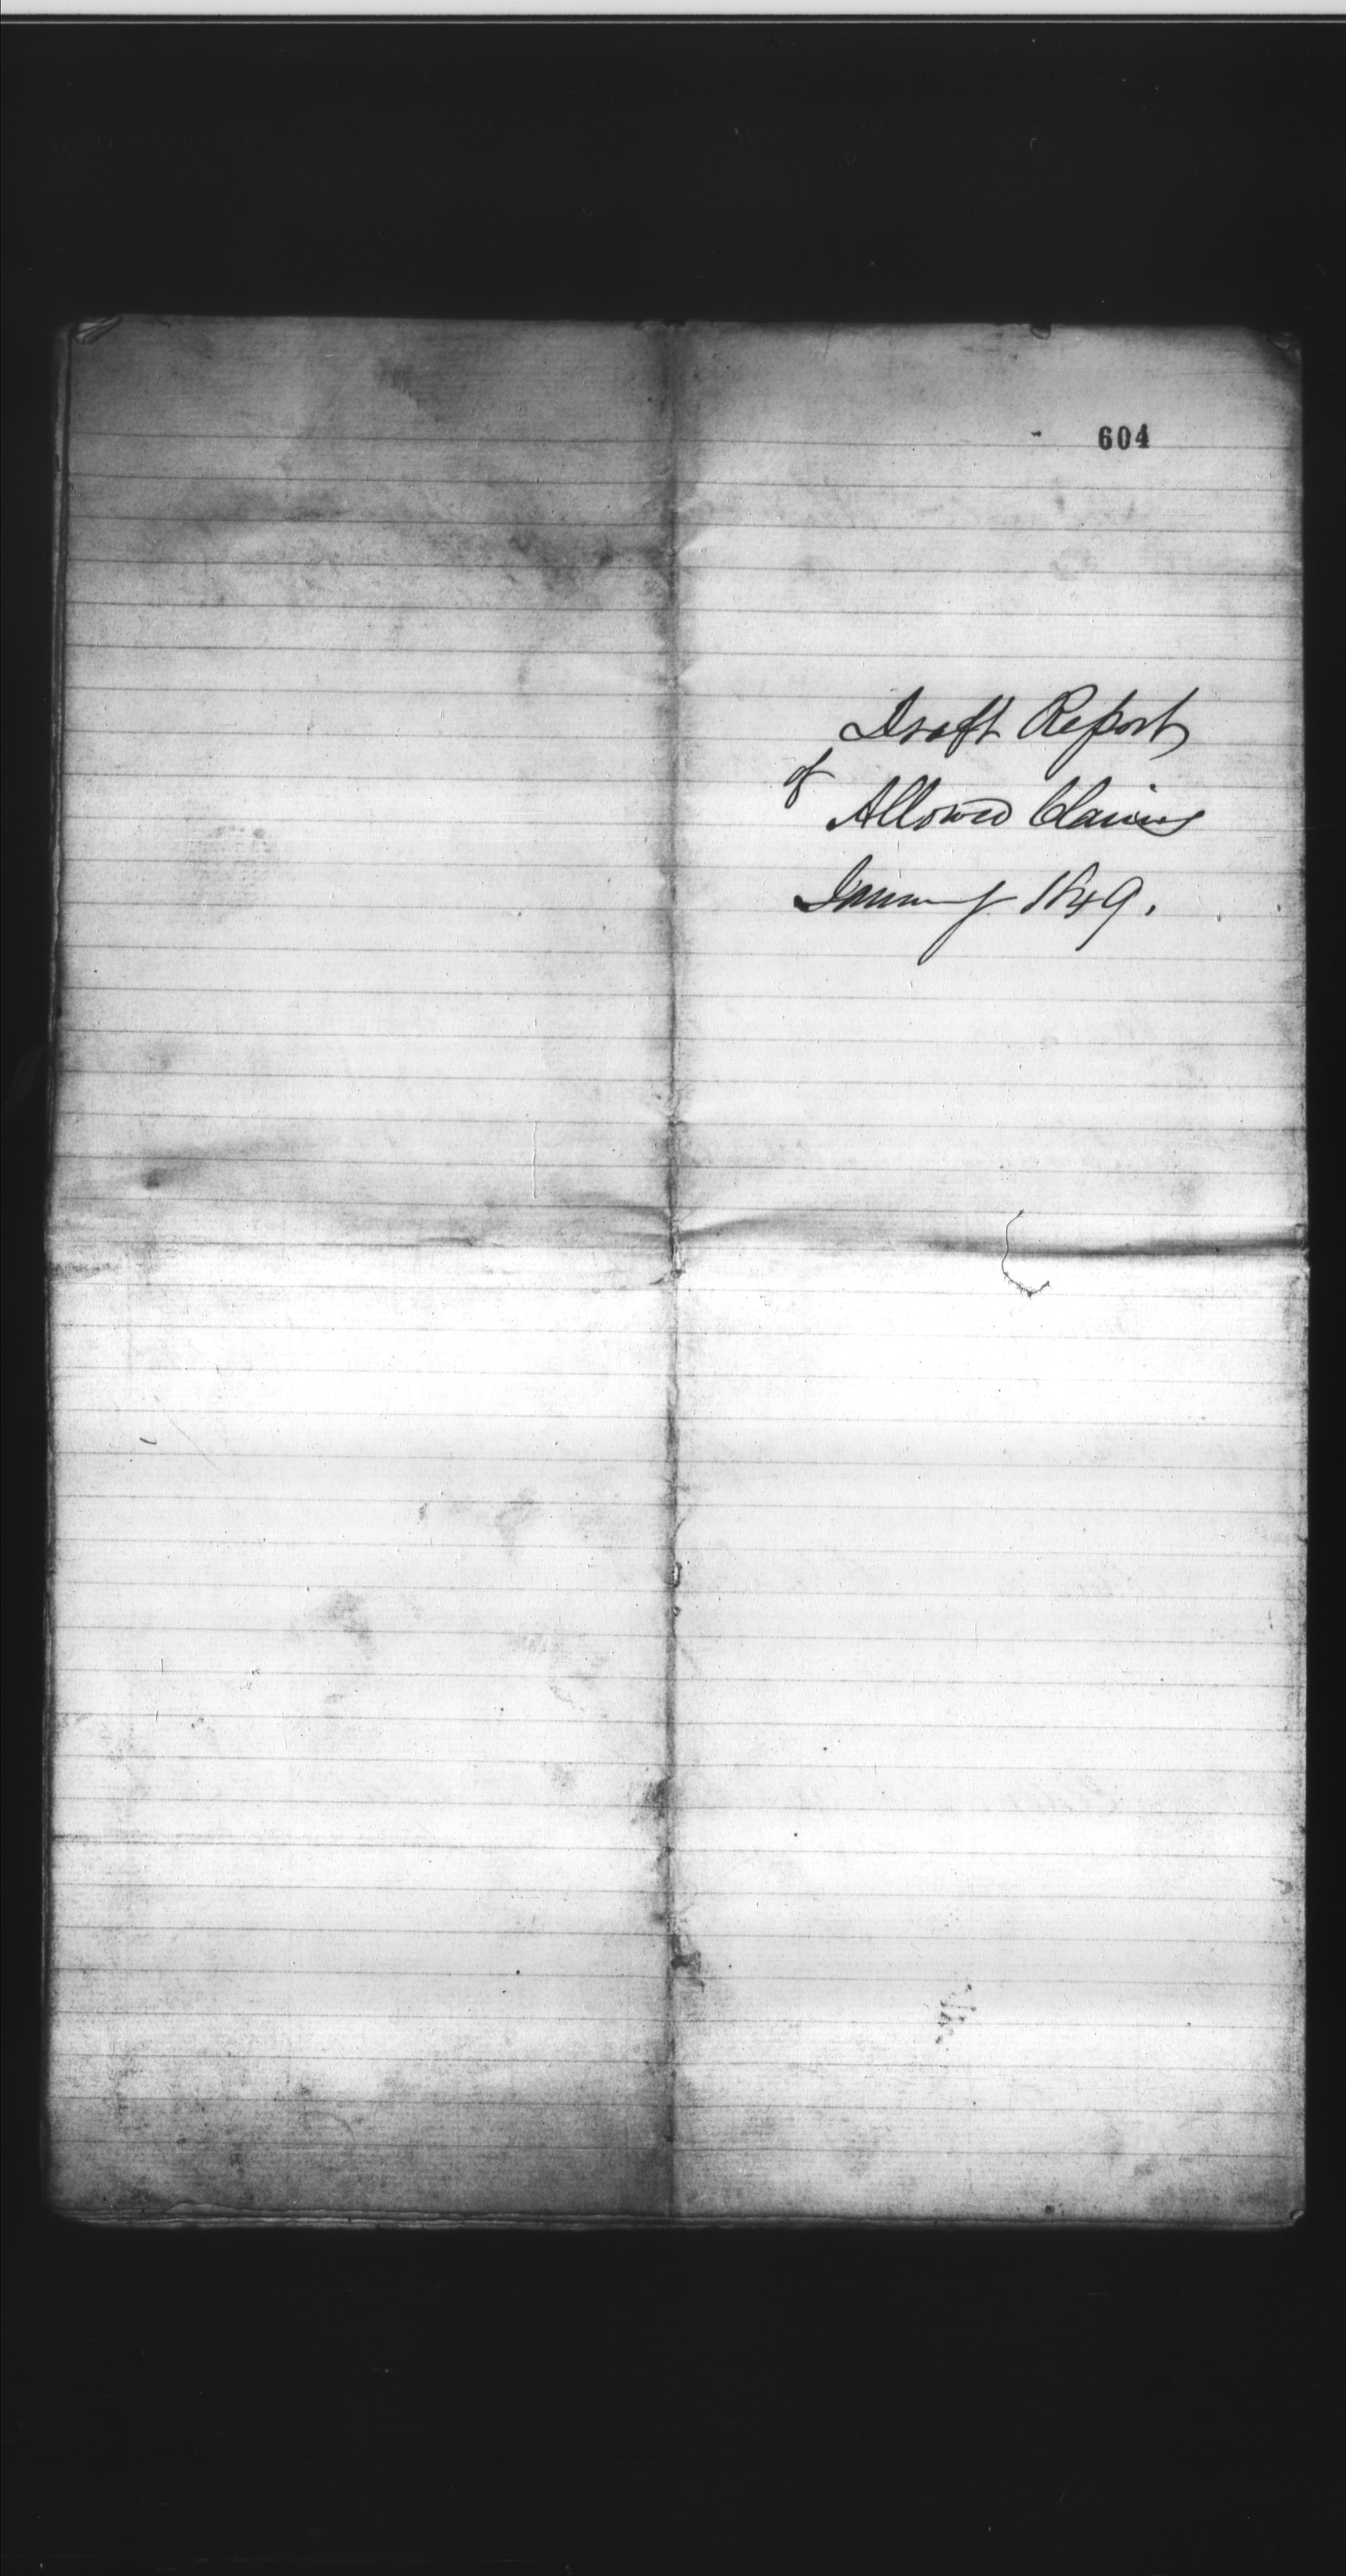 604
Draft Report
of
Allowed Claims
January 1849.